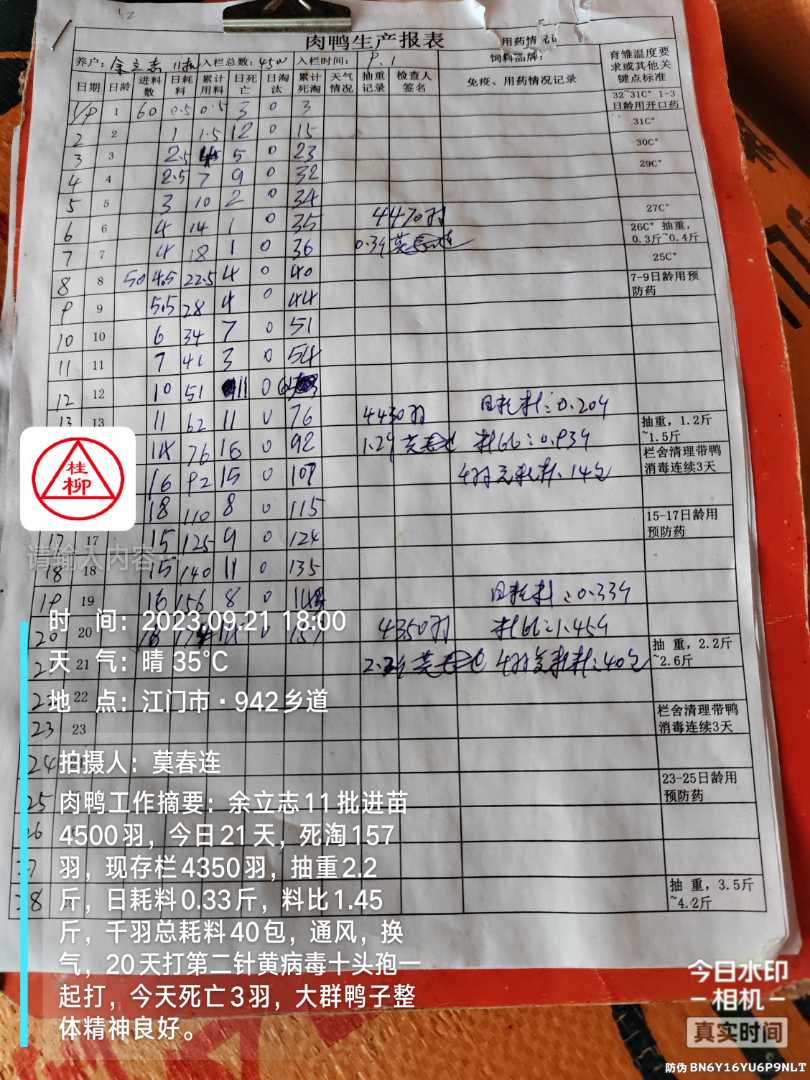 肉鸭生产报表
用药情
养户: 余立志 11批 入栏总数: 4500 入栏时间: 9.1 饲料品牌:
日期 日龄 进料数 日耗料 累计用料 日死亡 日淘汰 累计死淘 天气情况 抽重记录 检查人签名 免疫、用药情况记录 育雏温度要求或其他关键点标准
1/9 1 60 0.5 0.5 3 0 3 32~31C° 1-3日龄用开口药
2 2 1 1.5 12 0 15 31C°
3 3 2.5 5 0 23 30C°
4 4 2.5 7 9 0 32 29C°
5 5 3 10 2 0 34 27C°
6 6 4 14 1 0 35 4470羽 26C° 抽重,0.3斤~0.4斤
7 7 4 18 1 0 36 25C°
8 8 50 4.5 22.5 4 0 40 7-9日龄用预防药
9 9 5.5 28 4 0 44
10 10 6 34 7 0 51
11 11 7 41 3 0 54
12 12 10 51 11 0
13 13 11 62 11 0 76 4430羽 日耗料:0.20斤 抽重,1.2斤~1.5斤
14 76 16 0 92 料比:0.93斤 栏舍清理带鸭消毒连续3天
16 92 15 0 107
18 110 8 0 115 15-17日龄用预防药
17 17 15 125 9 0 124
18 18 15 140 11 0 135
19 19 16 156 8 0 日耗料:0.33斤
20 20 0 157 4350羽 料比:1.45斤
21 抽 重,2.2斤~2.6斤
22
23 23 栏舍清理带鸭消毒连续3天
24
25 23-25日龄用预防药
28 抽 重,3.5斤~4.2斤
桂柳
请输入内容
时 间:2023.09.21 18:00
天 气:晴 35℃
地 点:江门市·942乡道
拍摄人:莫春连
肉鸭工作摘要:余立志11批进苗
4500羽,今日21天,死淘157
羽,现存栏4350羽,抽重2.2
斤,日耗料0.33斤,料比1.45
斤,千羽总耗料40包,通风,换
气,20天打第二针黄病毒十头孢一
起打,今天死亡3羽,大群鸭子整
体精神良好。
今日水印
相机
真实时间
防伪 BN6Y16YU6P9NLT